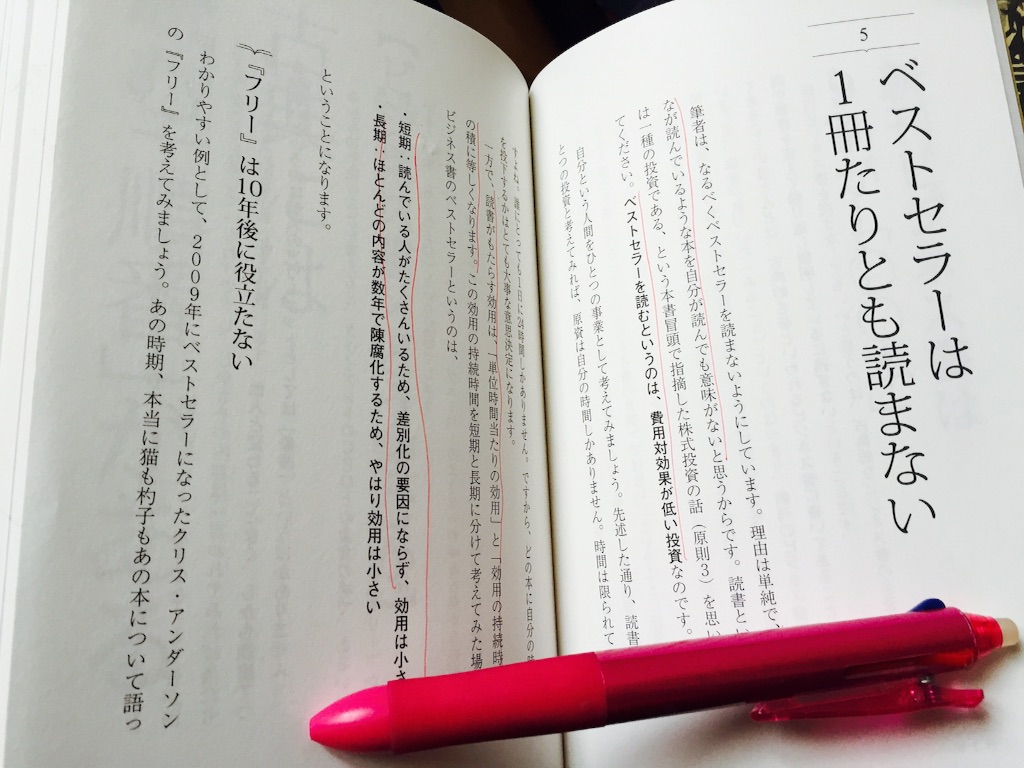 5
ベストセラーは
1冊たりとも読まない
筆者は、なるべくベストセラーを読まないようにしています。理由は単純で、
なが読んでいるような本を自分が読んでも意味がないと思うからです。読書とい
は一種の投資である、という本書冒頭で指摘した株式投資の話（原則3）を思い
てください。ベストセラーを読むというのは、費用対効果が低い投資なのです。
自分という人間をひとつの事業として考えてみましょう。先述した通り、読書
とつの投資と考えてみれば、原資は自分の時間しかありません。時間は限られて
すよね。誰にとっても1日に24時間しかありません。ですから、どの本に自分の時
を投下するかはとても大事な意思決定になります。
一方で、読書がもたらす効用は、「単位時間当たりの効用」と「効用の持続時
の積に等しくなります。この効用の持続時間を短期と長期に分けて考えてみた場
ビジネス書のベストセラーというのは、
・短期：読んでいる人がたくさんいるため、差別化の要因にならず、効用は小さ
・長期：ほとんどの内容が数年で陳腐化するため、やはり効用は小さい
ということになります。
『フリー』は10年後に役立たない
わかりやすい例として、2009年にベストセラーになったクリス・アンダーソン
の『フリー』を考えてみましょう。あの時期、本当に猫も杓子もあの本について語っ